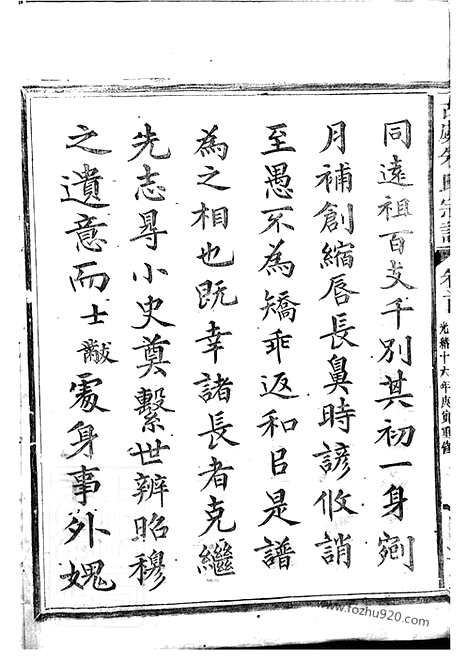 同遠祖百支千別其初一身剜
月補創縮唇長鼻時諺攸誚
至愚不為矯乖返和吕是譜
為之相也既幸諸長者克繼
先志尋小史奠繫世辨昭穆
之遺意而士黻處身事外媿
朱氏宗譜
卷首
光緒十六年庚寅重修
www.fozhu920.com